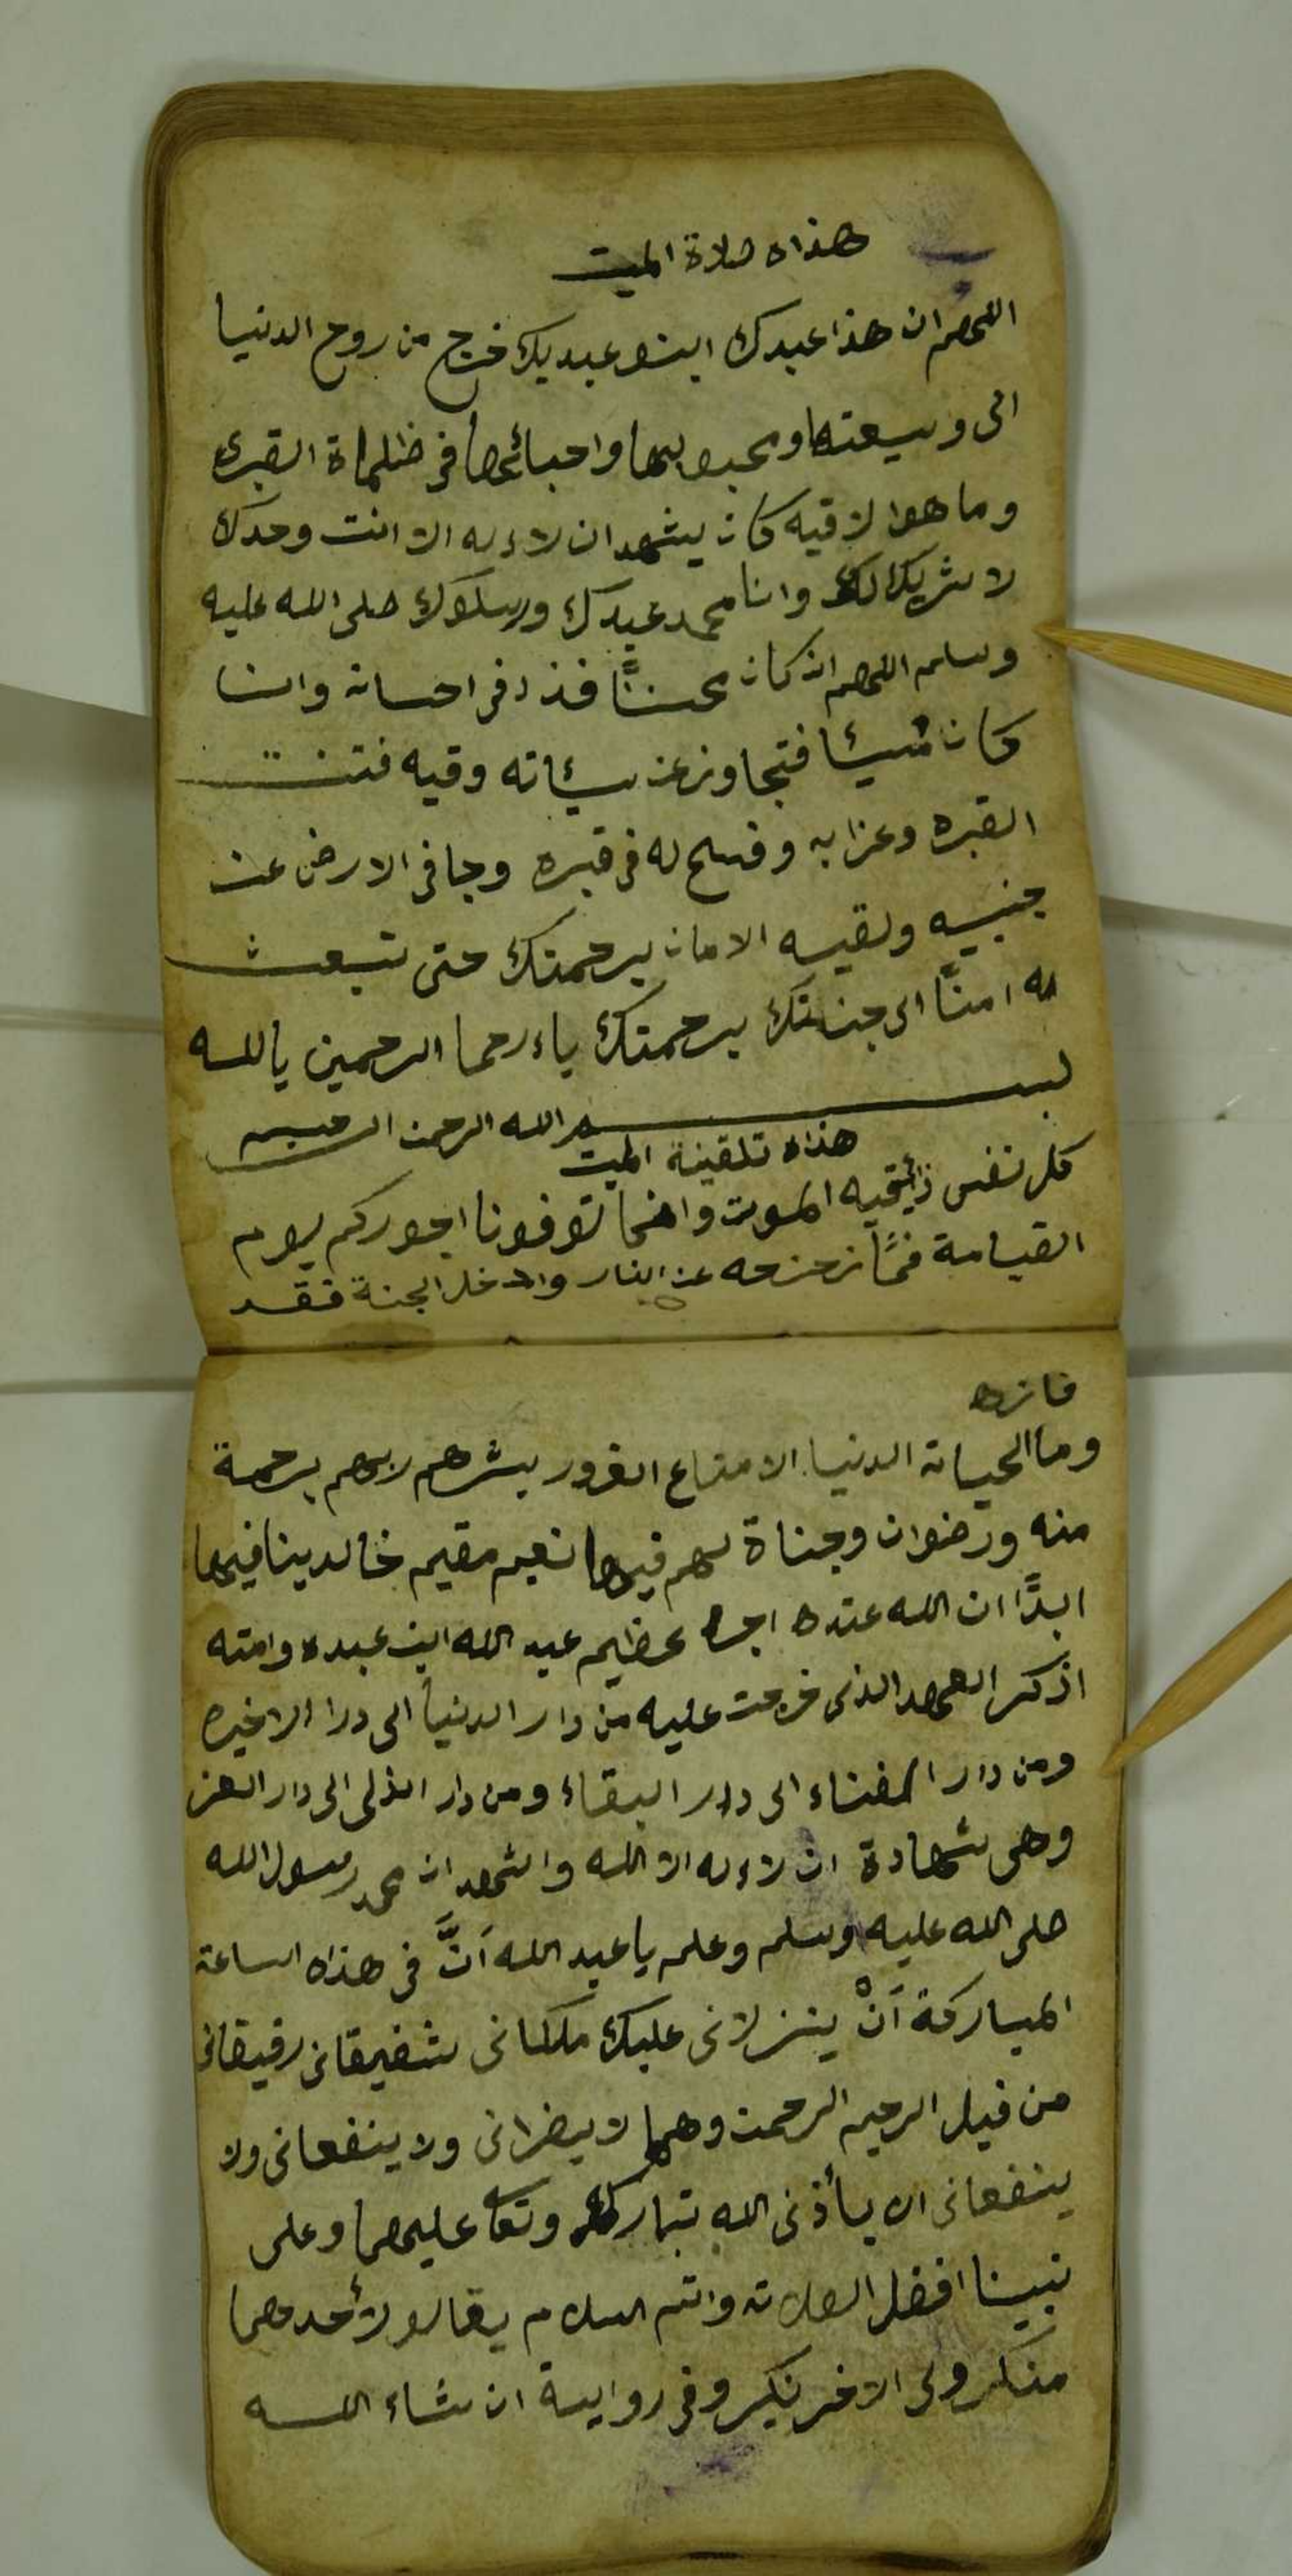 هذاه صلاة الميت
اللهم ان هذا عبدك ابنو عبديك خرج من روح الدنيا
الى وسيعتها ومحبوبيها واحبائها في ظلماة القبرى
وما هوا لاقيه كان يشهد ان لا اله الا انت وحدك
لا شريك لك وانا محمد عبدك ورسلوك صلى الله عليه
وسلم اللهم ان كان محسنًا فذد في احسانه وانا
كان مسيئا فتجاوز عن سيئاته وقيه فتنت
القبره وعزابه وفسح له في قبره وجافى الارض عن
جنبيه ولقيه الامان برحمتك حتى تبعث
له امنًا الى جنتك برحمتك ياءرحما الرحمين ياالله
بسم الله الرحمن الرحيم
هذاه تلقينة الميت
كل نفس ذائقيه الموت وانما توفونا اجوركم يوم
القيامة فمًا زحزحه عن النار وادخل الجنة فقد
فازه
وما الحياته الدنيا الا متاع الغرور يبشرهم ربهم برحمة
منه ورضوان وجناة لهم فيها نعيم مقيم خالدينا فيها
ابدًا ان الله عنده اجره عظيم عبد الله ابن عبده وامته
اذكر العهد الذى خرجت عليه من دار الدنيا الى درا الاخيره
ومن دار الفناء الى دار البقاء ومن دار الذلى الى دار العز
وهى شهادة ان لا اله الا الله واشهد ان محمد رسول الله
صلى الله عليه وسلم وعلم ياعبد الله اَنَّ في هذاه الساعة
المباركة اَنْ ينزلانى عليك ملكانى شفيقانى رفيقانى
من قبل الرحيم الرحمن وهما لا يضرانى ولا ينفعانى ولا
ينفعانى الا بأذنى الله تبارك وتعا عليهما وعلى
نبينا افضل الصلاته واتم السلام يقالو لأحدهما
منكر ولى الاخر نكير وفي رواية ان شاء الله